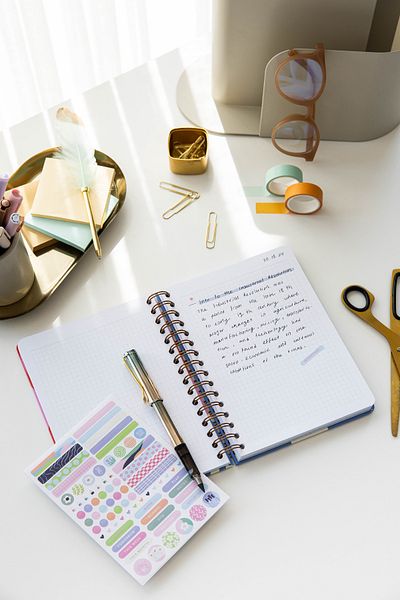 Intro to the Industrial Revolution
The Industrial Revolution was
a period from the 18th to
19th century where
major changes in agriculture,
manufacturing, mining, transport
and technology had
a profound effect on the
socio-economic and cultural
conditions of the times.